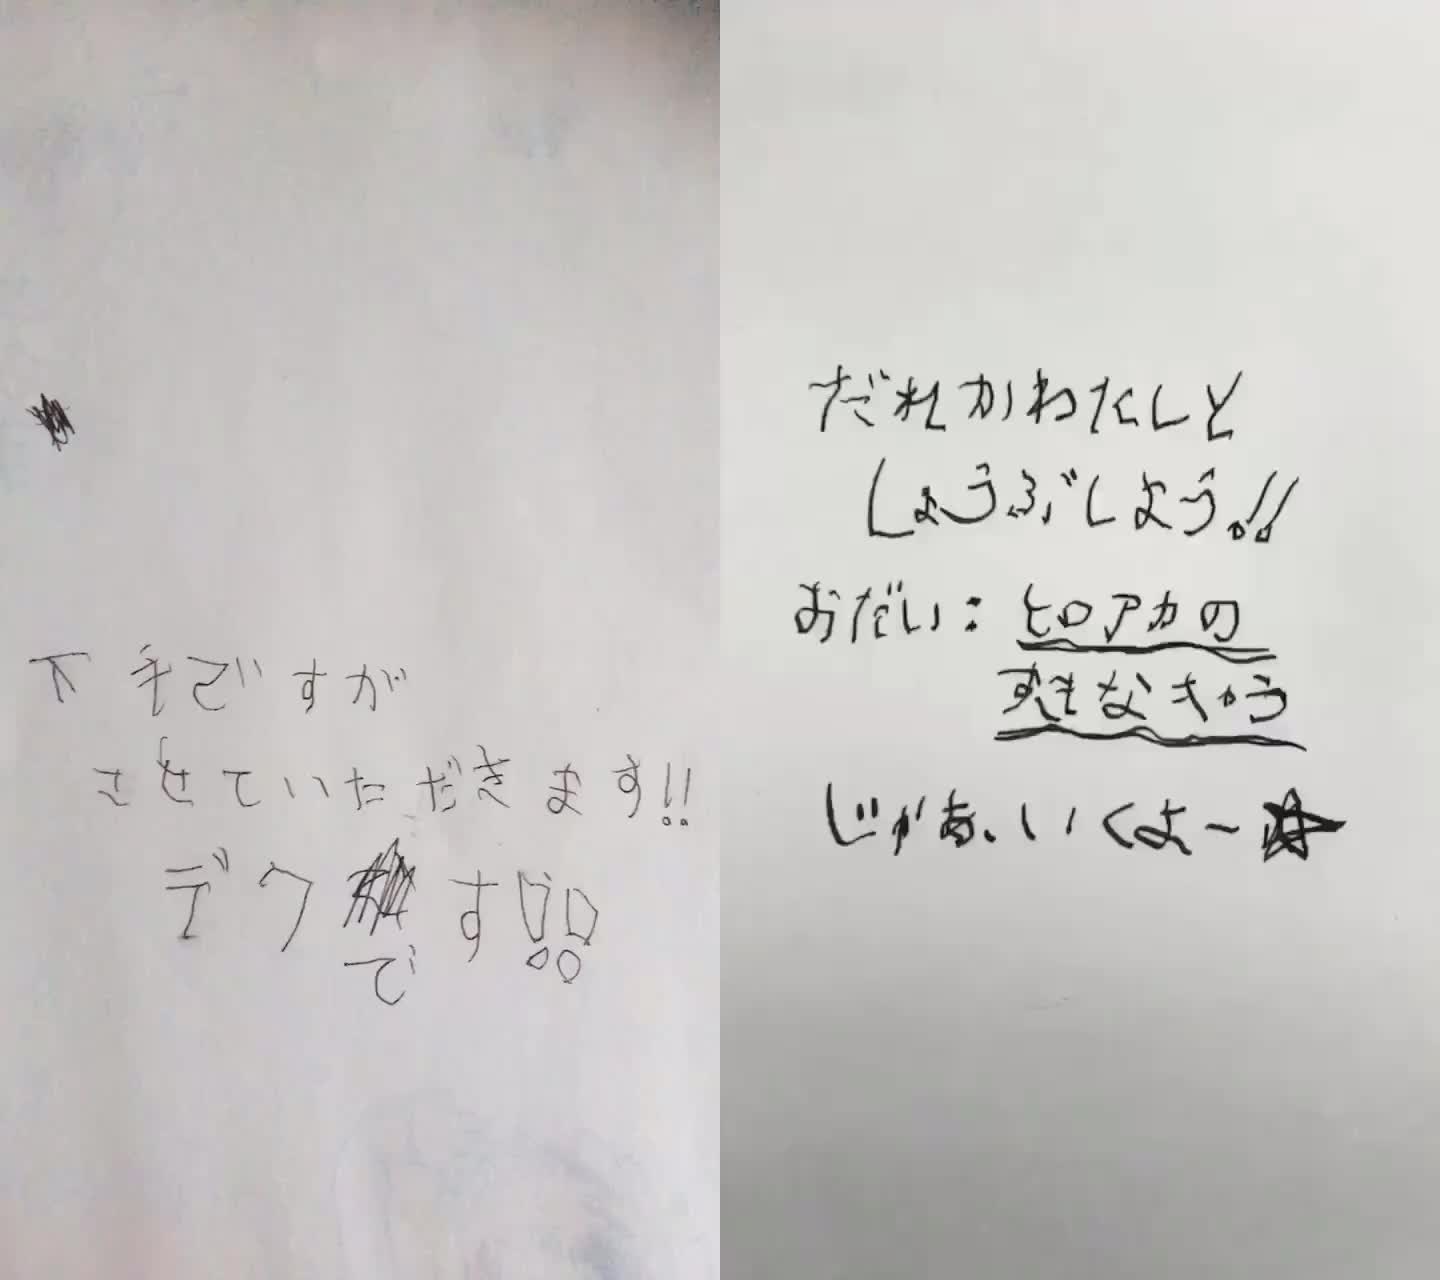 下手ですが
させていただきます!!
デク
です!!
だれかわたしと
しょうぶしよう!!
おだい:ヒロアカの
すきなキャラ
じゃあ、いくよ~☆